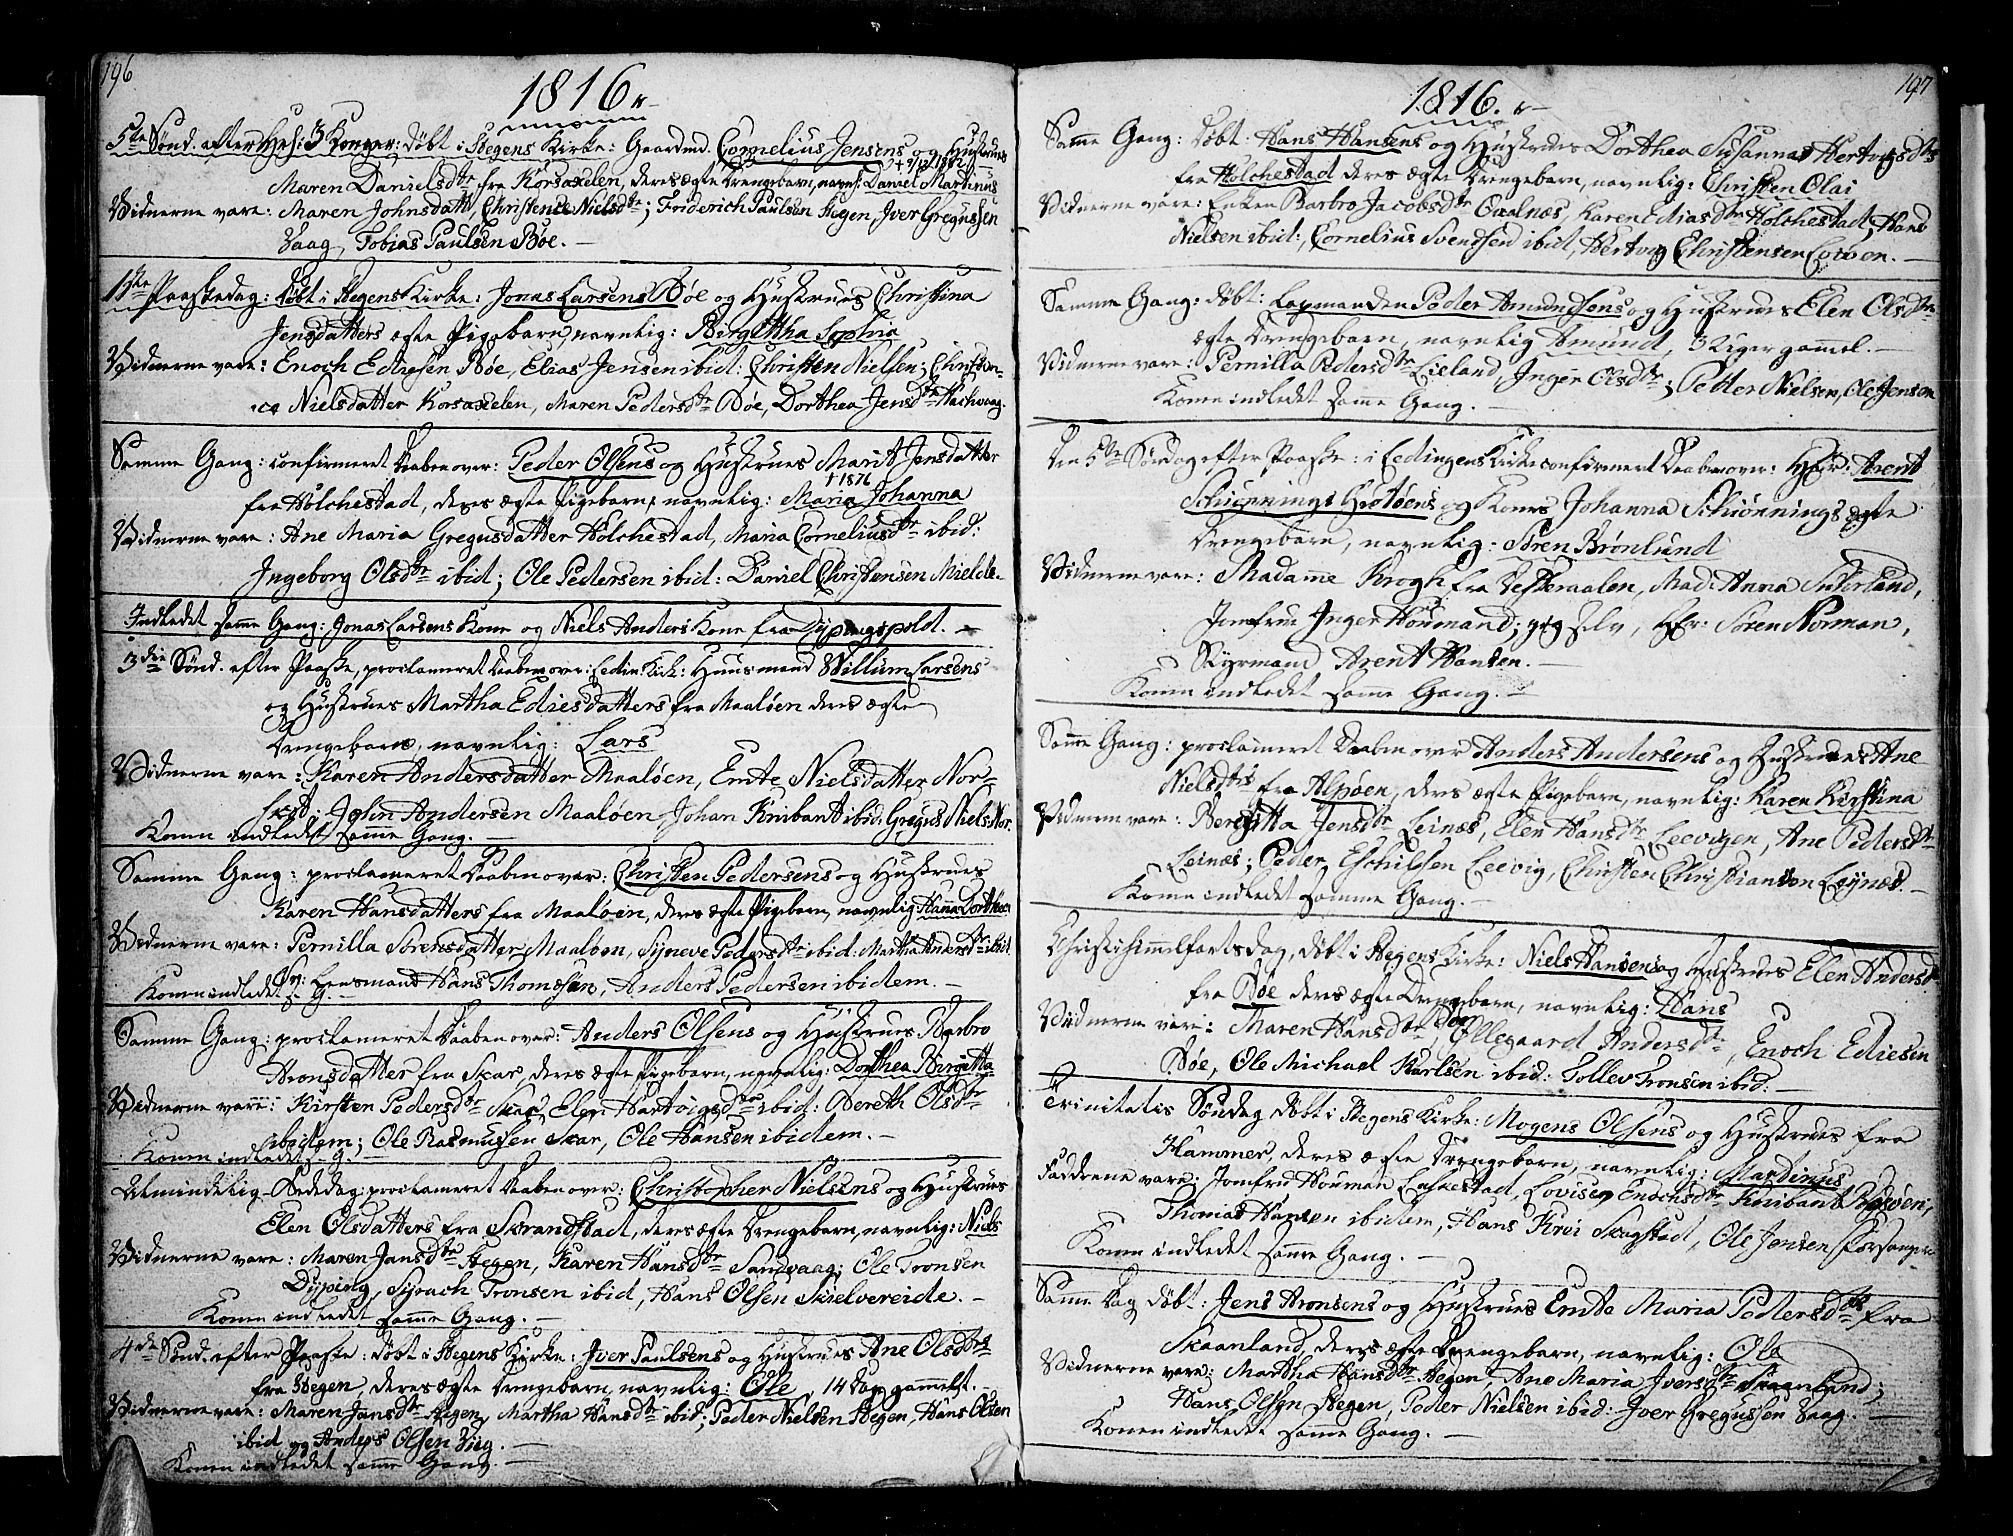 196
1816
5te Sønd. efter H: 3 Konger: døbt i Stegens Kirke: Gaardmd. Cornelius Jensens og Hustrues
Maren Danielsdtr fra Korsaxelen, deres ægte Drengebarn, navnl: Daniel Martinus
Vidnerne vare: Maren Johnsdattr, Christence Nielsdtr; Friderich Paulsen Stegen, Jver Gregussen
Vaag, Tobias Paulsen Bøe.
1ste Paaskedag: døbt i Stegens Kirke: Jonas Larsens Bøe og Hustrues Christina
Jensdatters ægte Pigebarn, navnlig: Birgittha Sophia
Vidnerne vare: Enoch Ediesen Bøe, Elias Jensen ibid: Christen Nielsen; Christen-
ce Nielsdatter Korsaxelen, Maren Pedersdtr Bøe, Dorthea Jensdtr Hachvaag.
Samme Gang: confirmeret Daaben over: Peder Olsens og Hustrues Marit Jensdatter
† 1876
fra Holchestad, deres ægte Pigebarn, navnlig: Maria Johanna
Vidnerne vare: Ane Maria Gregusdatter Holchestad, Maria Corneliusdtr ibid:
Ingeborg Olsdtr ibid; Ole Pedersen ibid: Daniel Christensen Mielde.
Indledet samme Gang: Jonas Larsens Kone og Niels Anders Kone fra Dypingspoldt.
3die Sønd. efter Paaske, proclameret Daaben over: Ledin: Kirk: Huusmand Willum Larsens
og Hustrues Martha Ediesdatters fra Maaløen deres ægte
Drengebarn, navnlig: Lars
Vidnerne vare: Karen Andersdatter Maaløen, Emte Nielsdatter Nor-
John Andersen Maaløen, Johan Knibant ibid: Gregus Niels: Nor.
Konen indledet samme Gang.
Samme Gang: proclameret Daaben over: Christen Pedersens og Hustrues
Karen Hansdatters fra Maaløen, deres ægte Pigebarn, navnlig: Hanna Dorthea
Vidnerne vare: Pernilla Sørensdatter Maaløen, Synneve Pedersdtr ibid: Martha Andersdtr ibid:
Lensmand Hans Thomesen, Anders Pedersen ibidem.
Konen indledet s. G.
Samme Gang: proclameret Daaben over: Anders Olsens og Hustrues Barbro
Aronsdatter fra Skar, deres ægte Pigebarn, navnlig: Dorthea Birgitta
Vidnerne vare: Kirsten Pedersdtr Skar, Elen Hartvigsdtr ibid: Bereth Olsdtr
ibidem; Ole Rasmussen Skar, Ole Hansen ibidem.
Konen indledet s. g.
Almindelig Bededag: proclameret Daaben over: Christopher Nielsens og Hustrues
Elen Olsdatters fra Strandstad, deres ægte Drengebarn, navnlig: Niels
Vidnerne vare: Maren Jansdtr Stegen, Karen Hansdtr Sandvaag; Ole Tronsen
Dyping, Sivach Tronsen ibid, Hans Olsen Skielvereide.
Konen indledet samme Gang.
4de Sønd. efter Paaske: døbt i Stegens Kirke: Jver Paulsens og Hustrues Ane Olsdtrs
fra Stegen, deres ægte Drengebarn, navnlig: Ole, 14 Dage gammelt.
Vidnerne vare: Maren Jansdtr Stegen, Martha Hansdtr ibid; Peder Nielsen Stegen, Hans Olsen
ibid og Anders Olsen Viig.
Konen indledet samme Gang.
197
1816.
Samme Gang: Døbt: Hans Hansens og Hustrues Dorthea Susanna Hertvigsdtrs
fra Holchestad deres ægte Drengebarn, navnlig: Christen Olai
Vidnerne vare: Enken Barbro Jacobsdtr Qualnæs, Karen Eliasdtr Holchestad, Hans
Nielsen ibid:, Cornelius Svendsen ibid, Hertvig Christensen Lovøen.
Samme Gang: døbt: Lapmanden Peder Amundsens og Hustrues Elen Olsdtrs
ægte Drengebarn, navnlig Amund, 3 Uger gammel.
Vidnerne vare: Pernilla Pedersdtr Lieland, Inger Olsdtr; Petter Nielsen, Ole Jensen
Konen indledet samme Gang.
Den 5te Søndag efter Paaske: i Ledingens Kirke confirmert Daaben over: Hr: Arent
Schiønnings Grøtøens og Kones Johanna Schiønnings ægte
Drengebarn, navnlig: Søren Brønlund
Vidnerne vare: Madame Krogh fra Vesteraalen, Mad: Anna Suterland,
Jomfru Inger Houmand; jeg selv, Hr: Søren Norman,
Styrmand Arent Hansen.
Konen indledet samme Gang.
Samme Gang: proclameret Daaben over Anders Andersens og Hustrues Ane
Nielsdtrs fra Alpøen, deres ægte Pigebarn, navnlig: Karen Kirstina
Vidnerne vare: Beregitta Jensdtr Leinæs, Elen Hansdtr Leevigen, Ane Pedersdtr
Leinæs; Peder Eschilsen Leevig, Christen Christiansen Leinæs.
Konen indledet samme Gang.
Christi himmelfarts Dag, døbt i Stegens Kirke: Niels Hansens og Hustrues Elen Andersdtr
fra Bøe deres ægte Drengebarn, navnlig: Hans
Vidnerne vare: Maren Hansdtr Bøe, Ollegaard Andersdtr, Enoch Ediesen
Bøe, Ole Michael Karlsen ibid: Tollev Tronsen ibid:
Trinitatis Søndag døbt i Stegens Kirke: Mogens Olsens og Hustrues fra
Hammer, deres ægte Drengebarn, navnlig: Mardinus
Faddrene vare: Jomfru Houman Laskestad, Lovise Enochsdtr Knibant Bogøen,
Thomas Hansen ibidem, Hans Krei Skagstad, Ole Jensen
Konen indledet samme Gang.
Samme Dag døbt: Jens Aronsens og Hustrues Emte Maria Pedersdtr fra
Skaanland, deres ægte Drengebarn, navnlig: Ole
Vidnerne vare: Martha Hansdtr Stegen, Ane Maria Jversdtr Skaanland;
Hans Olsen Stegen, Peder Nielsen ibid: Jver Gregussen Vaag.
Konen indledet samme Gang.